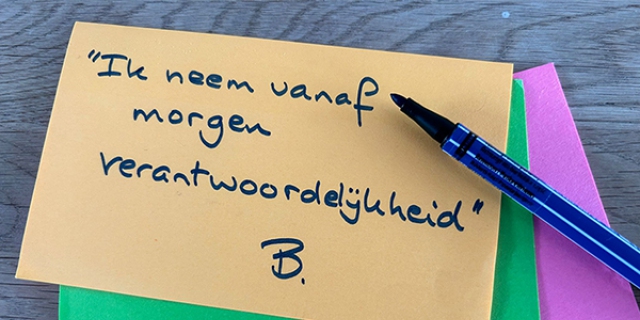 "Ik neem vanaf
morgen
verantwoordelijkheid"
B.